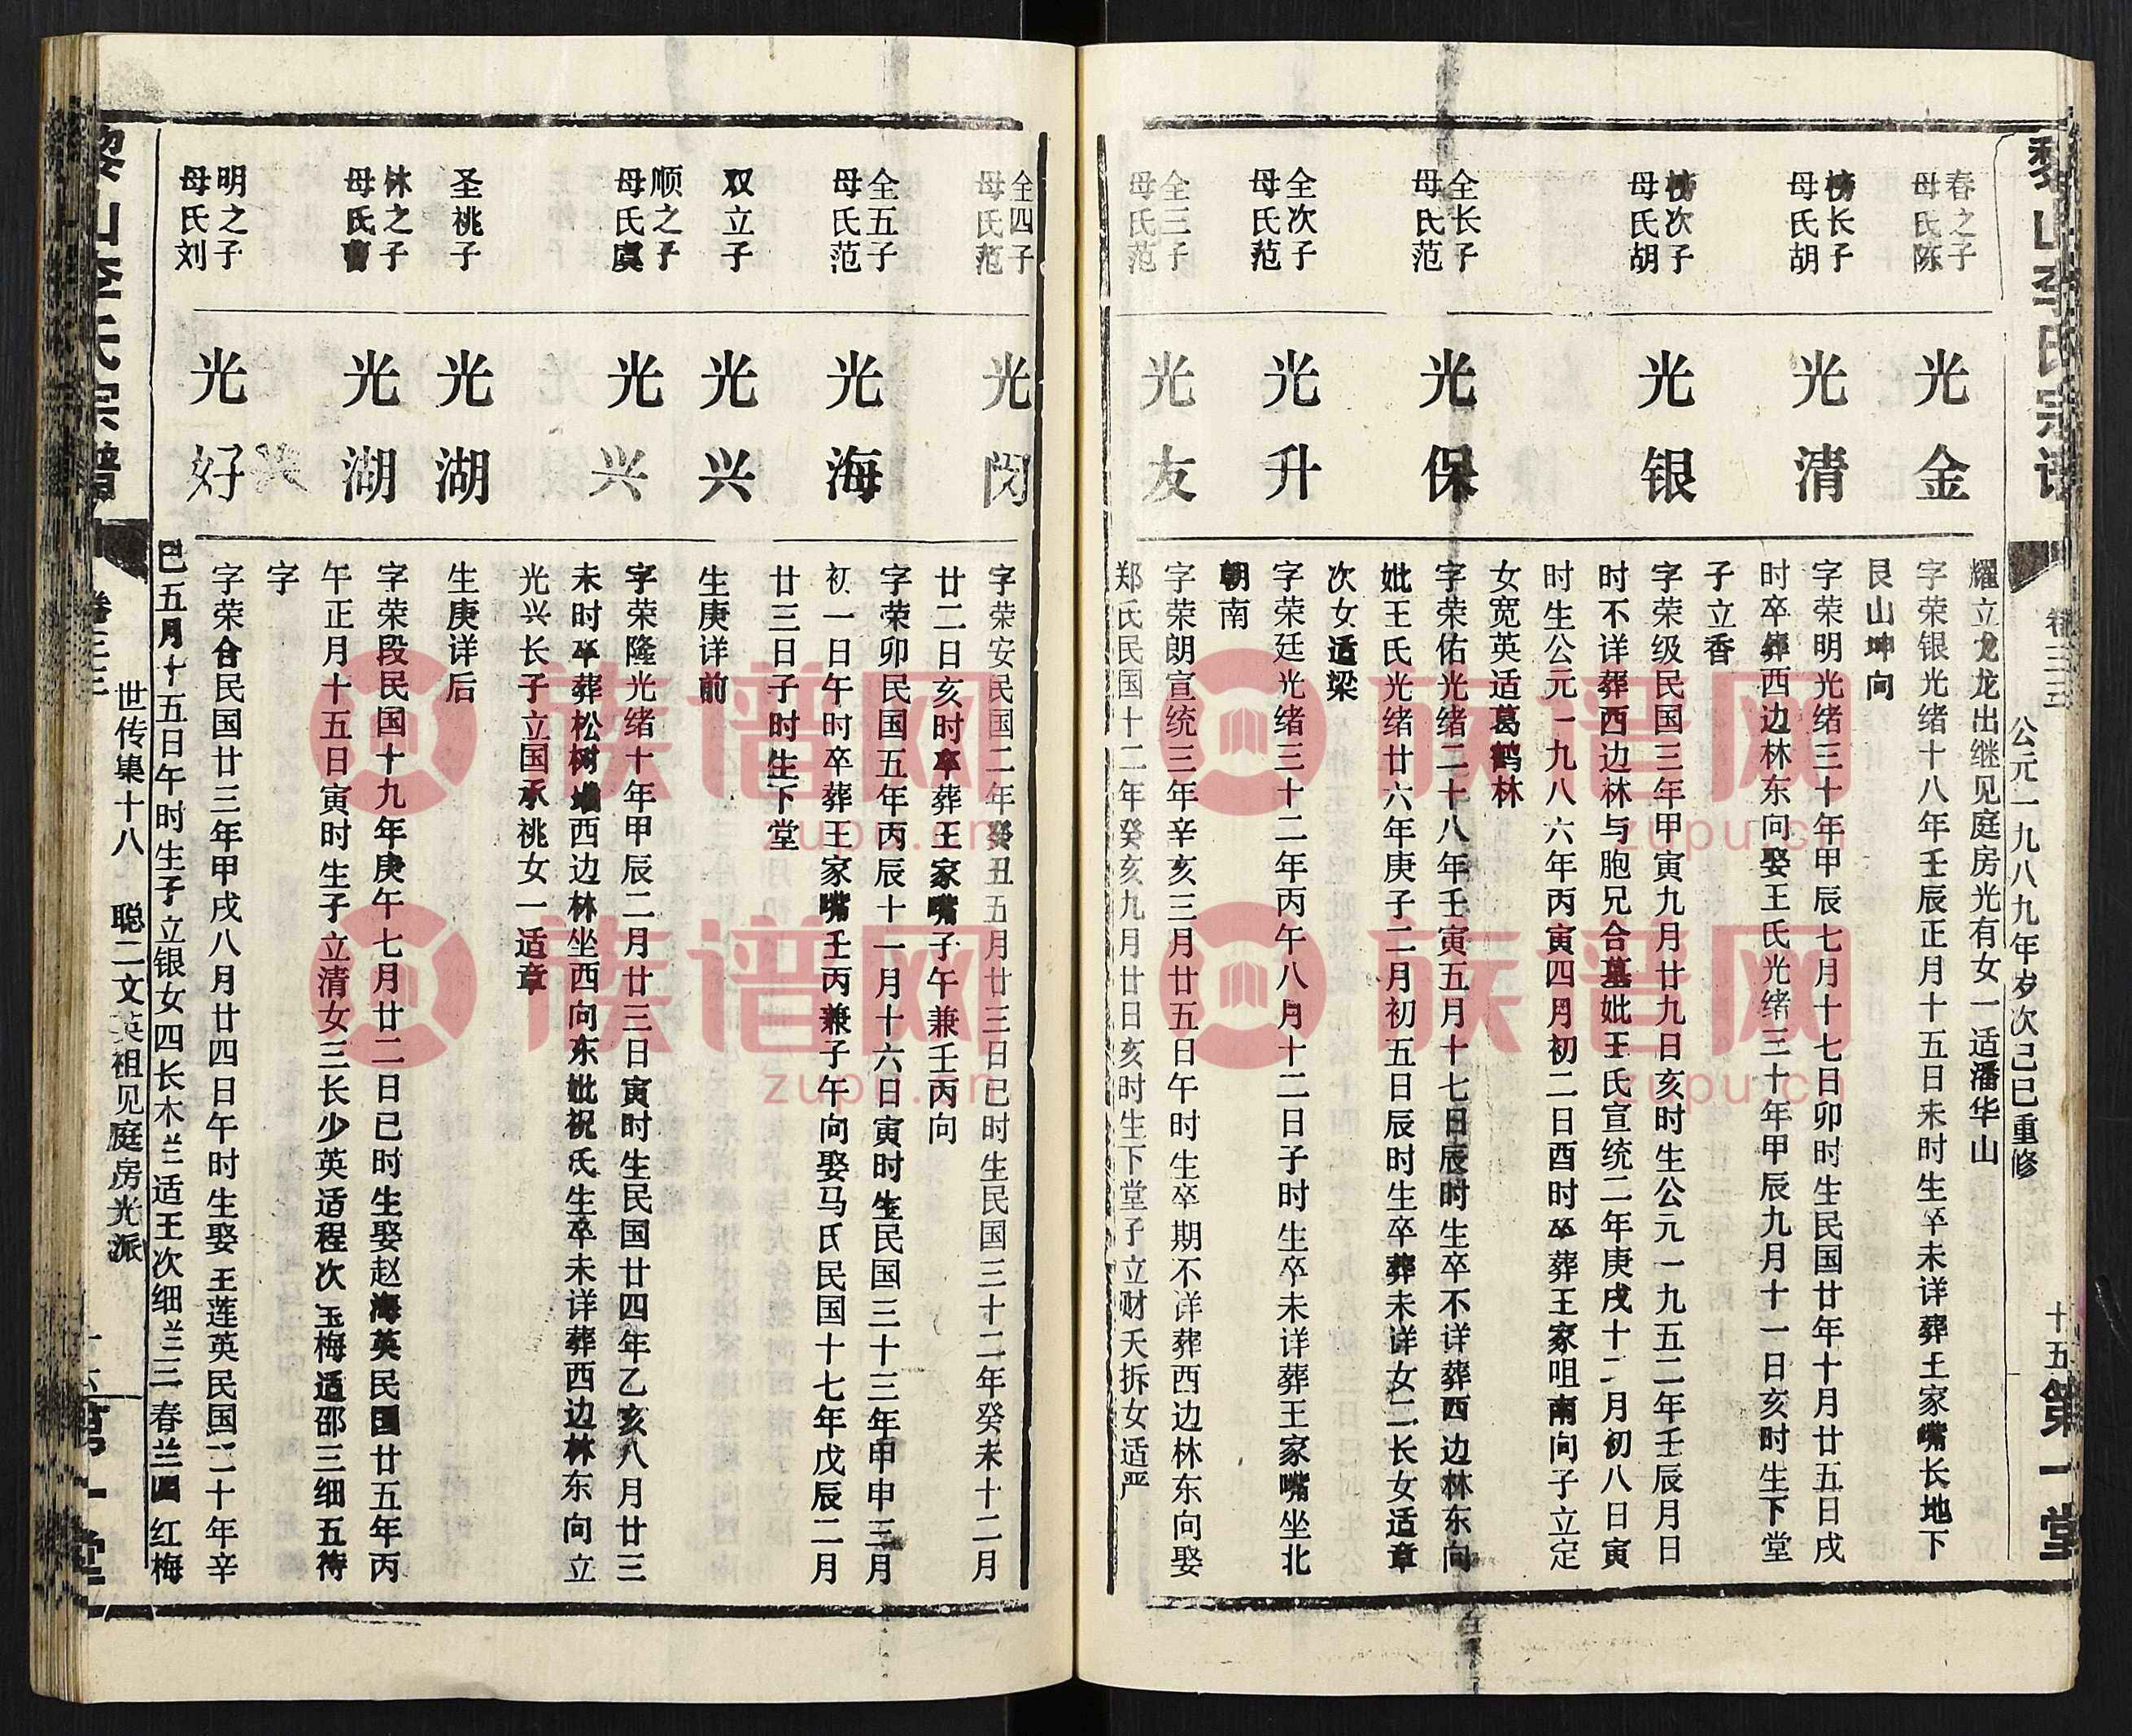 黎山李氏宗谱
卷三三
公元一九八九年岁次己巳重修
十五
第一堂
春之子
母氏陈
榜长子
母氏胡
榜次子
母氏胡
全长子
母氏范
全次子
母氏范
全三子
母氏范
光金
光清
光银
光保
光升
光友
耀立龙龙出继见庭房光有女一适潘华山
字荣银光绪十八年壬辰正月十五日未时生卒未详葬王家嘴长地下
艮山坤向
字荣明光绪三十年甲辰七月十七日卯时生民国廿年十月廿五日戌
时卒葬西边林东向娶王氏光绪三十年甲辰九月十一日亥时生下堂
子立香
字荣级民国三年甲寅九月廿九日亥时生公元一九五二年壬辰月日
时不详葬西边林与胞兄合墓妣王氏宣统二年庚戌十二月初八日寅
时生公元一九八六年丙寅四月初二日酉时卒葬王家咀南向子立定
女宽英适葛鹤林
字荣佑光绪二十八年壬寅五月十七日辰时生卒不详葬西边林东向
妣王氏光绪廿六年庚子二月初五日辰时生卒葬未详女二长女适章
次女适梁
字荣廷光绪三十二年丙午八月十二日子时生卒未详葬王家嘴坐北
朝南
字荣朗宣统三年辛亥三月廿五日午时生卒期不详葬西边林东向娶
郑氏民国十二年癸亥九月廿日亥时生下堂子立财夭拆女适严
全四子
母氏范
全五子
母氏范
双立子
顺之子
母氏虞
圣祧子
休之子
母氏曹
明之子
母氏刘
光闵
光海
光兴
光兴
光湖
光湖
光好
字荣安民国二年癸丑五月廿三日巳时生民国三十二年癸未十二月
廿二日亥时卒葬王家嘴子午兼壬丙向
字荣卯民国五年丙辰十一月十六日寅时生民国三十三年甲申三月
初一日午时卒葬王家嘴壬丙兼子午向娶马氏民国十七年戊辰二月
廿三日子时生下堂
生庚详前
字荣隆光绪十年甲辰二月廿三日寅时生民国廿四年乙亥八月廿三
未时卒葬松树西边林坐西向东妣祝氏生卒未详葬西边林东向立
光兴长子立国承祧女一适章
生庚详后
字荣段民国十九年庚午七月廿二日巳时生娶赵海英民国廿五年丙
午正月十五日寅时生子立清女三长少英适程次玉梅适邵三细五待
字
字荣合民国廿三年甲戌八月廿四日午时生娶王莲英民国二十年辛
巳五月十五日午时生子立银女四长木兰适王次细兰三春兰四红梅
世传集十八 聪二文英祖见庭房光派
黎山李氏宗谱
卷三三
第一堂
族谱网
zupu.cn
族谱网
zupu.cn
族谱网
zupu.cn
族谱网
zupu.cn